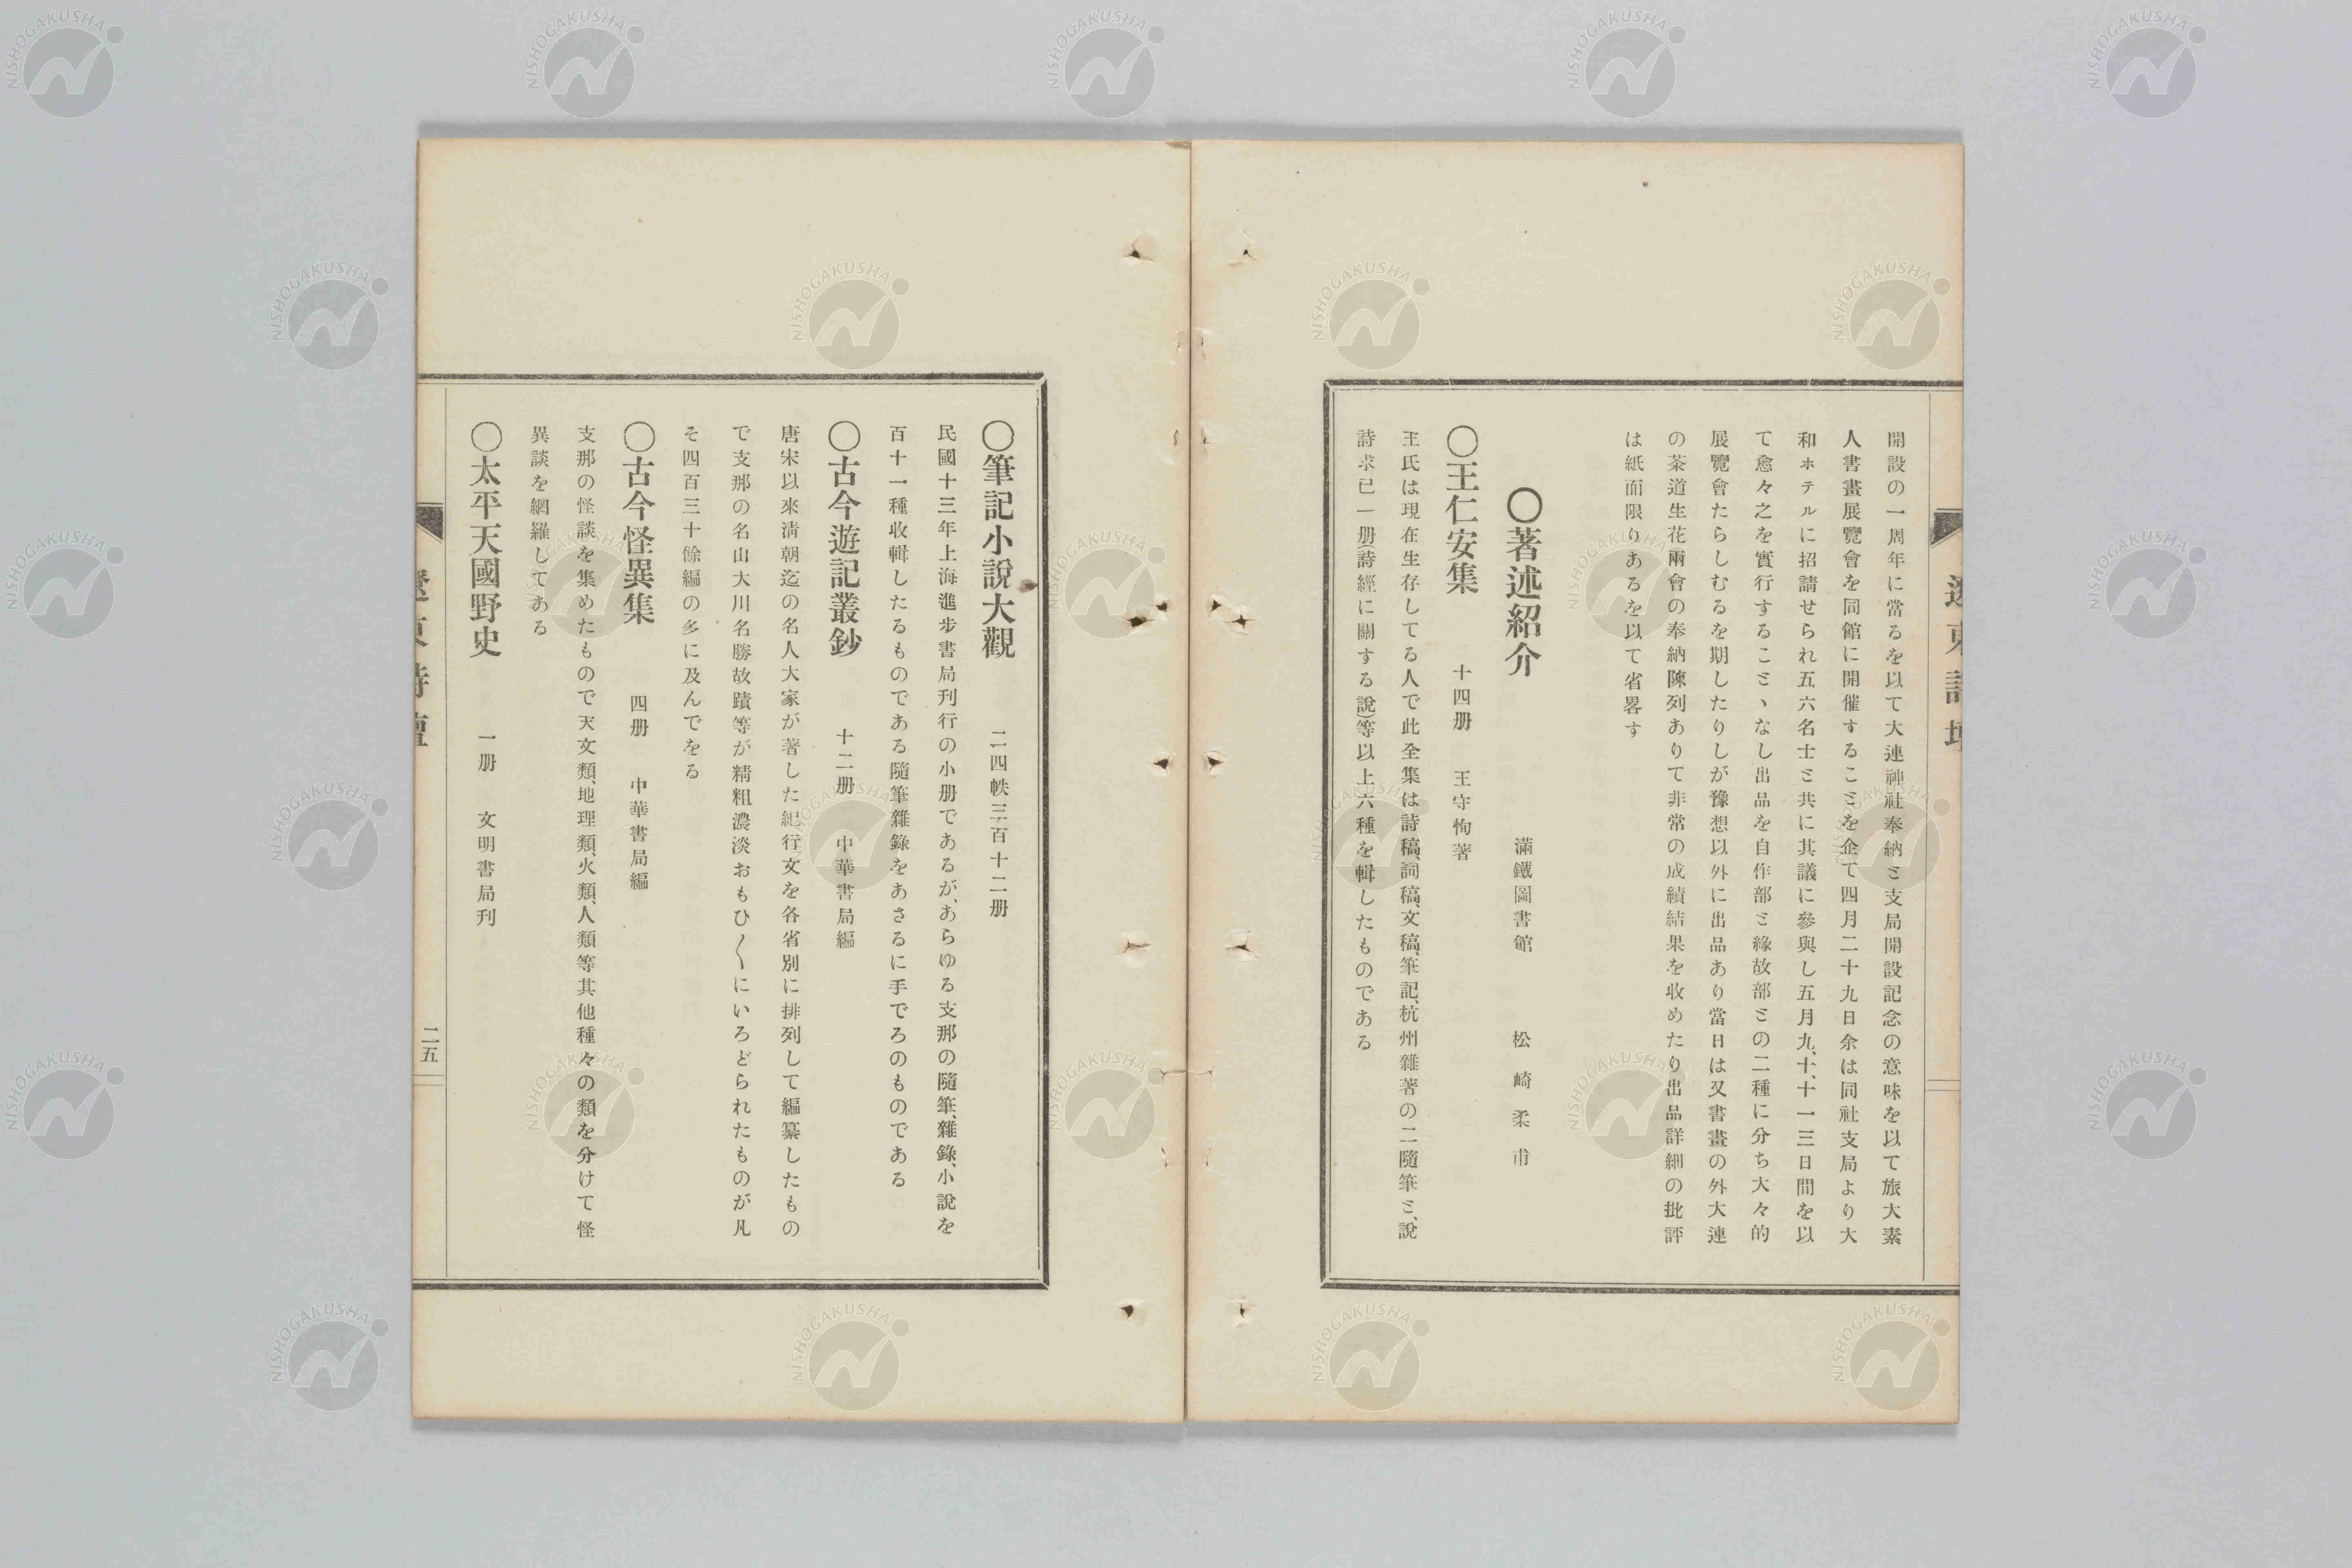 開設の一周年に當るを以て大連神社奉納ミ支局開設記念の意味を以て旅大素
人書畫展覽會を同館に開催するこミを企て四月二十九日余は同社支局より大
和ホテルに招請せられ五六名士ミ共に其議に參與し五月九、十、十一三日間を以
て愈々之を實行するこミヽなし出品を自作部ミ緣故部ミの二種に分ち大々的
展覽會たらしむるを期したりしが豫想以外に出品あり當日は又書畫の外大連
の茶道生花兩會の奉納陳列ありて非常の成績結果を收めたり出品詳細の批評
は紙面限りあるを以て省畧す
〇著述紹介　滿鐵圖書館　松崎柔甫
〇王仁安集　十四册　王守恂著
王氏は現在生存してる人で此全集は詩稿、詞稿、文稿、筆記、杭州雜著の二隨筆ミ、說
詩求已一册(詩經に關する說)等以上六種を輯したものである
〇筆記小說大觀　二四帙三百十二册
民國十三年上海進步書局刊行の小册であるが、あらゆる支那の隨筆、雜錄、小說を
百十一種收輯したるものである隨筆雜錄をあさるに手でろのものである
〇古今遊記叢鈔　十二册　中華書局編
唐宋以來淸朝迄の名人大家が著した紀行文を各省別に排列して編纂したもの
で支那の名山大川名勝故蹟等が精粗濃淡おもひ〱にいろどられたものが凡
そ四百三十餘編の多に及んでをる
〇古今怪異集　四册　中華書局編
支那の怪談を集めたもので天文類、地理類、火類、人類等其他種々の類を分けて怪
異談を網羅してある
〇太平天國野史　一册　文明書局刊
二五
NISHOGAKUSHA